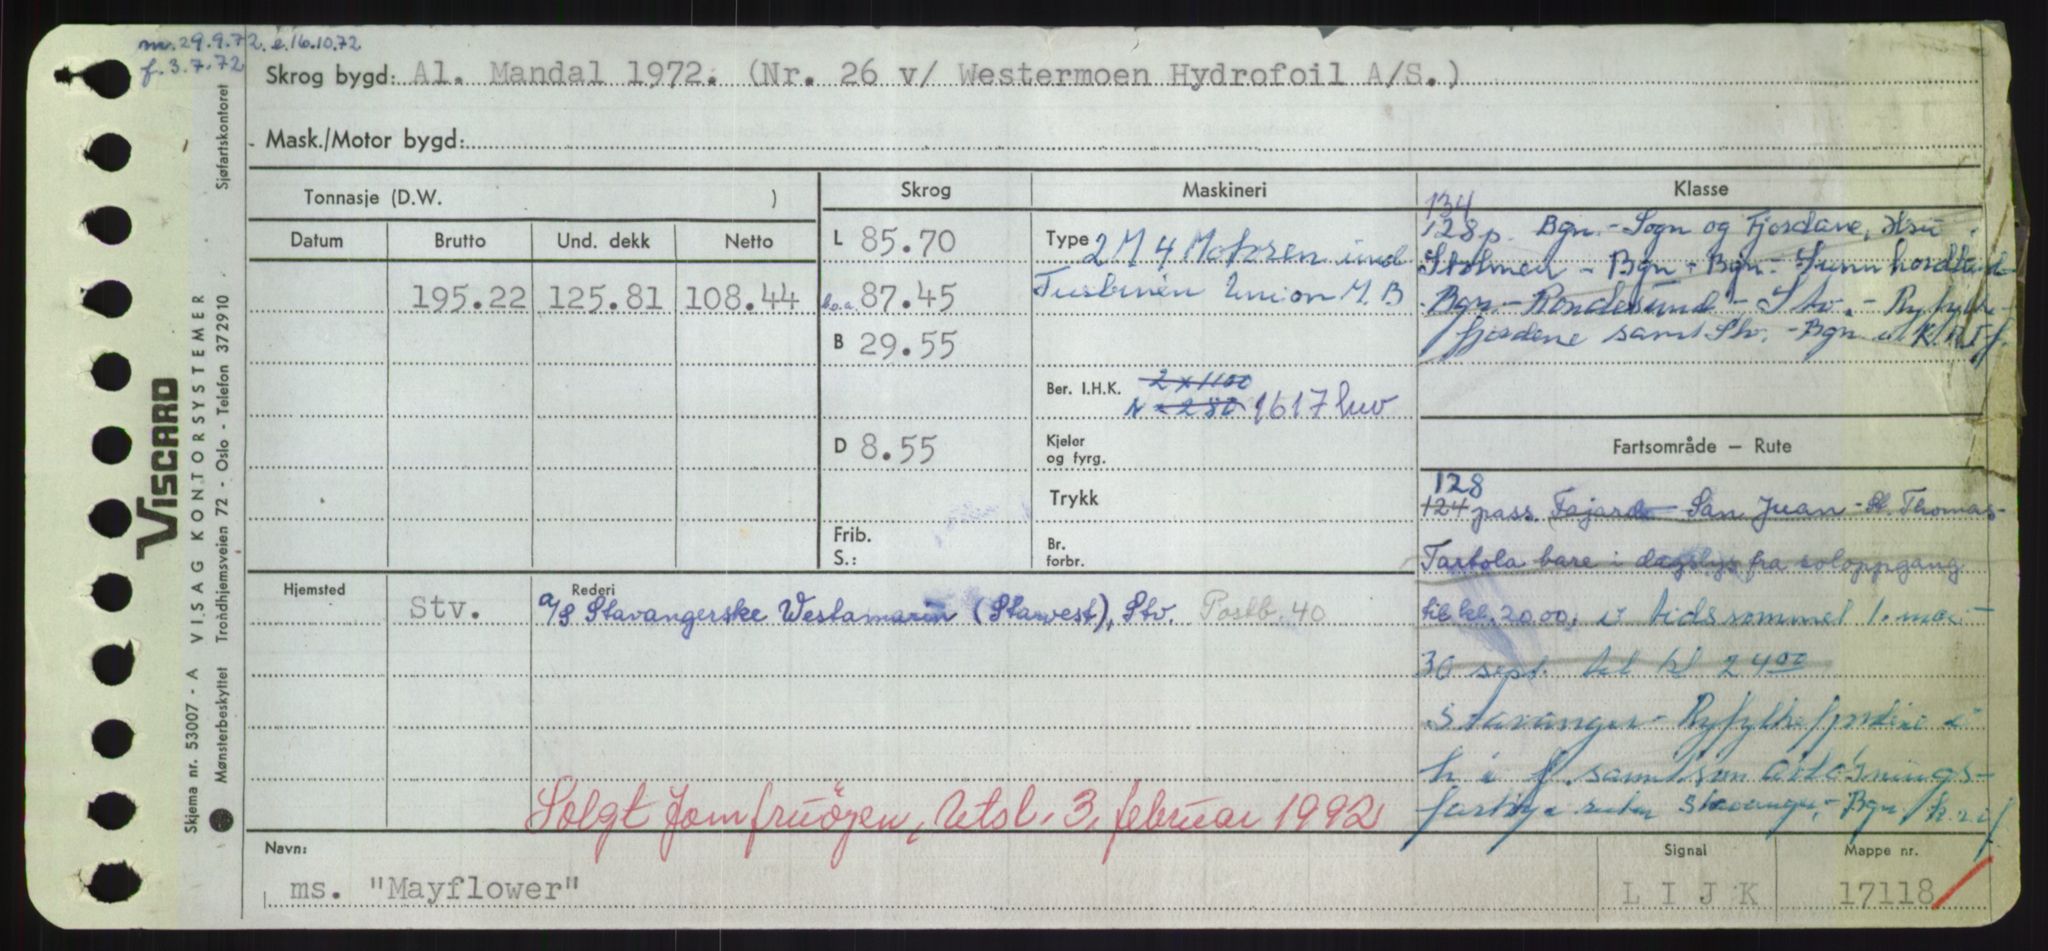 m. 29.9.72. é.16.10.72
f. 3.7.72
Skrog bygd: Al. Mandal 1972. (Nr. 26 v/ Westermoen Hydrofoil A/S.)
Mask./Motor bygd:
Tonnasje (D.W. )
Skrog
Maskineri
Klasse
Datum
Brutto
Und. dekk
Netto
195.22
125.81
108.44
L 85.70
b.o.a. 87.45
B 29.55
D 8.55
Frib.
S.:
Type 2 M 4 Motoren und
Turbinen Union M.B
Ber. I.H.K. 2 x 1100
1617
Kjeler
og fyrg.
Trykk
Br.
forbr.
134
128 p. Bgn. - Sogn og Fjordane,
Bgn - Bgn - Sunnhordland
Bgn. - Stv. - Ryfylke
fjordene samt Stv. - Bgn
Fartsområde — Rute
128
124 pass. Fajardo - San Juan - St. Thomas -
Tortola bare i dagslys fra soloppgang
til kl. 20.00. i tidsrommet 1. mai -
30 sept. til kl 24 00
Stavanger - Ryfylkefjordene
samt som avløsnings-
fartøy ruten Stavanger - Bgn. k.r.i.f.
Hjemsted
Stv.
Rederi
a/s Stavangerske Westamarin (Stawest), Stv. Postb. 40
Solgt Jomfruøyen, Utsl. 3. februar 1992
Navn:
ms. "Mayflower"
Signal
L I J K
Mappe nr.
17118
VISCARD
Skjema nr. 53007 - A VISAG KONTORSYSTEMER Sjøfartskontoret
Mønsterbeskyttet Trondhjemsveien 72 - Oslo - Telefon 372910